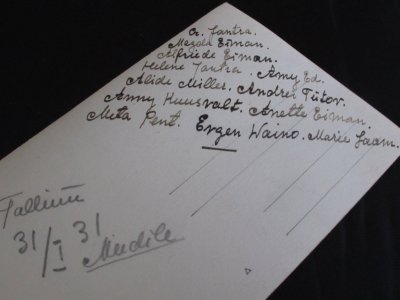 A. Jantra.
Magda Eiman.
Alfriede Eiman.
Helene Jantra. Amy Ed.
Alide Miller. Andrei Tutov.
Anny Kuusvalt. Anette Eiman.
Meta Pent. Evgen Waino. Marie Saam.
Tallinn
31/I 31